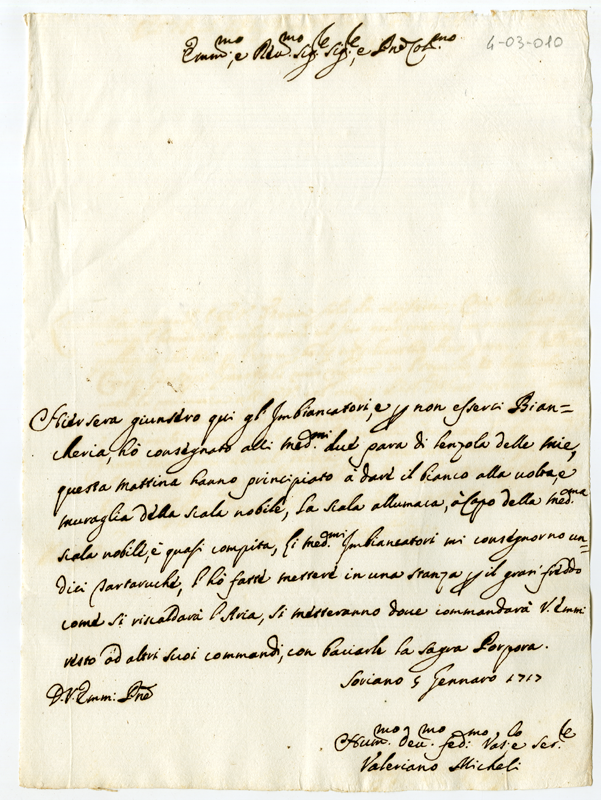 Emm.mo, e Reu.mo Sig.le Sig.le, e Pne Col.mo
4-03-010
Hiersera giunsero qui gl'Imbiancatori, e p non esserci Bian=
cheria, hò consegnato alli med.mi due para di lenzola delle mie,
questa mattina hanno principiato à dare il bianco alla uolta, e
muraglia della scala nobile, La scala allumaca, à Capo della med.ma
scala nobile, è quasi compita, li med.mi Imbiancatori mi consegnorno un=
dici Tartaruche, l'hò fatte mettere in una stanza p il gran' freddo
come si riscaldarà l'Aria, si metteranno doue commandarà V. Emm:
resto àd altri suoi commandi, con baciarle la sagra Porpora.
Soriano 5 Gennaro 1717
D. V. Emm: Pne
Hum.mo deu.mo fed.mo Vas.lo e Ser.le
Valeriano Micheli